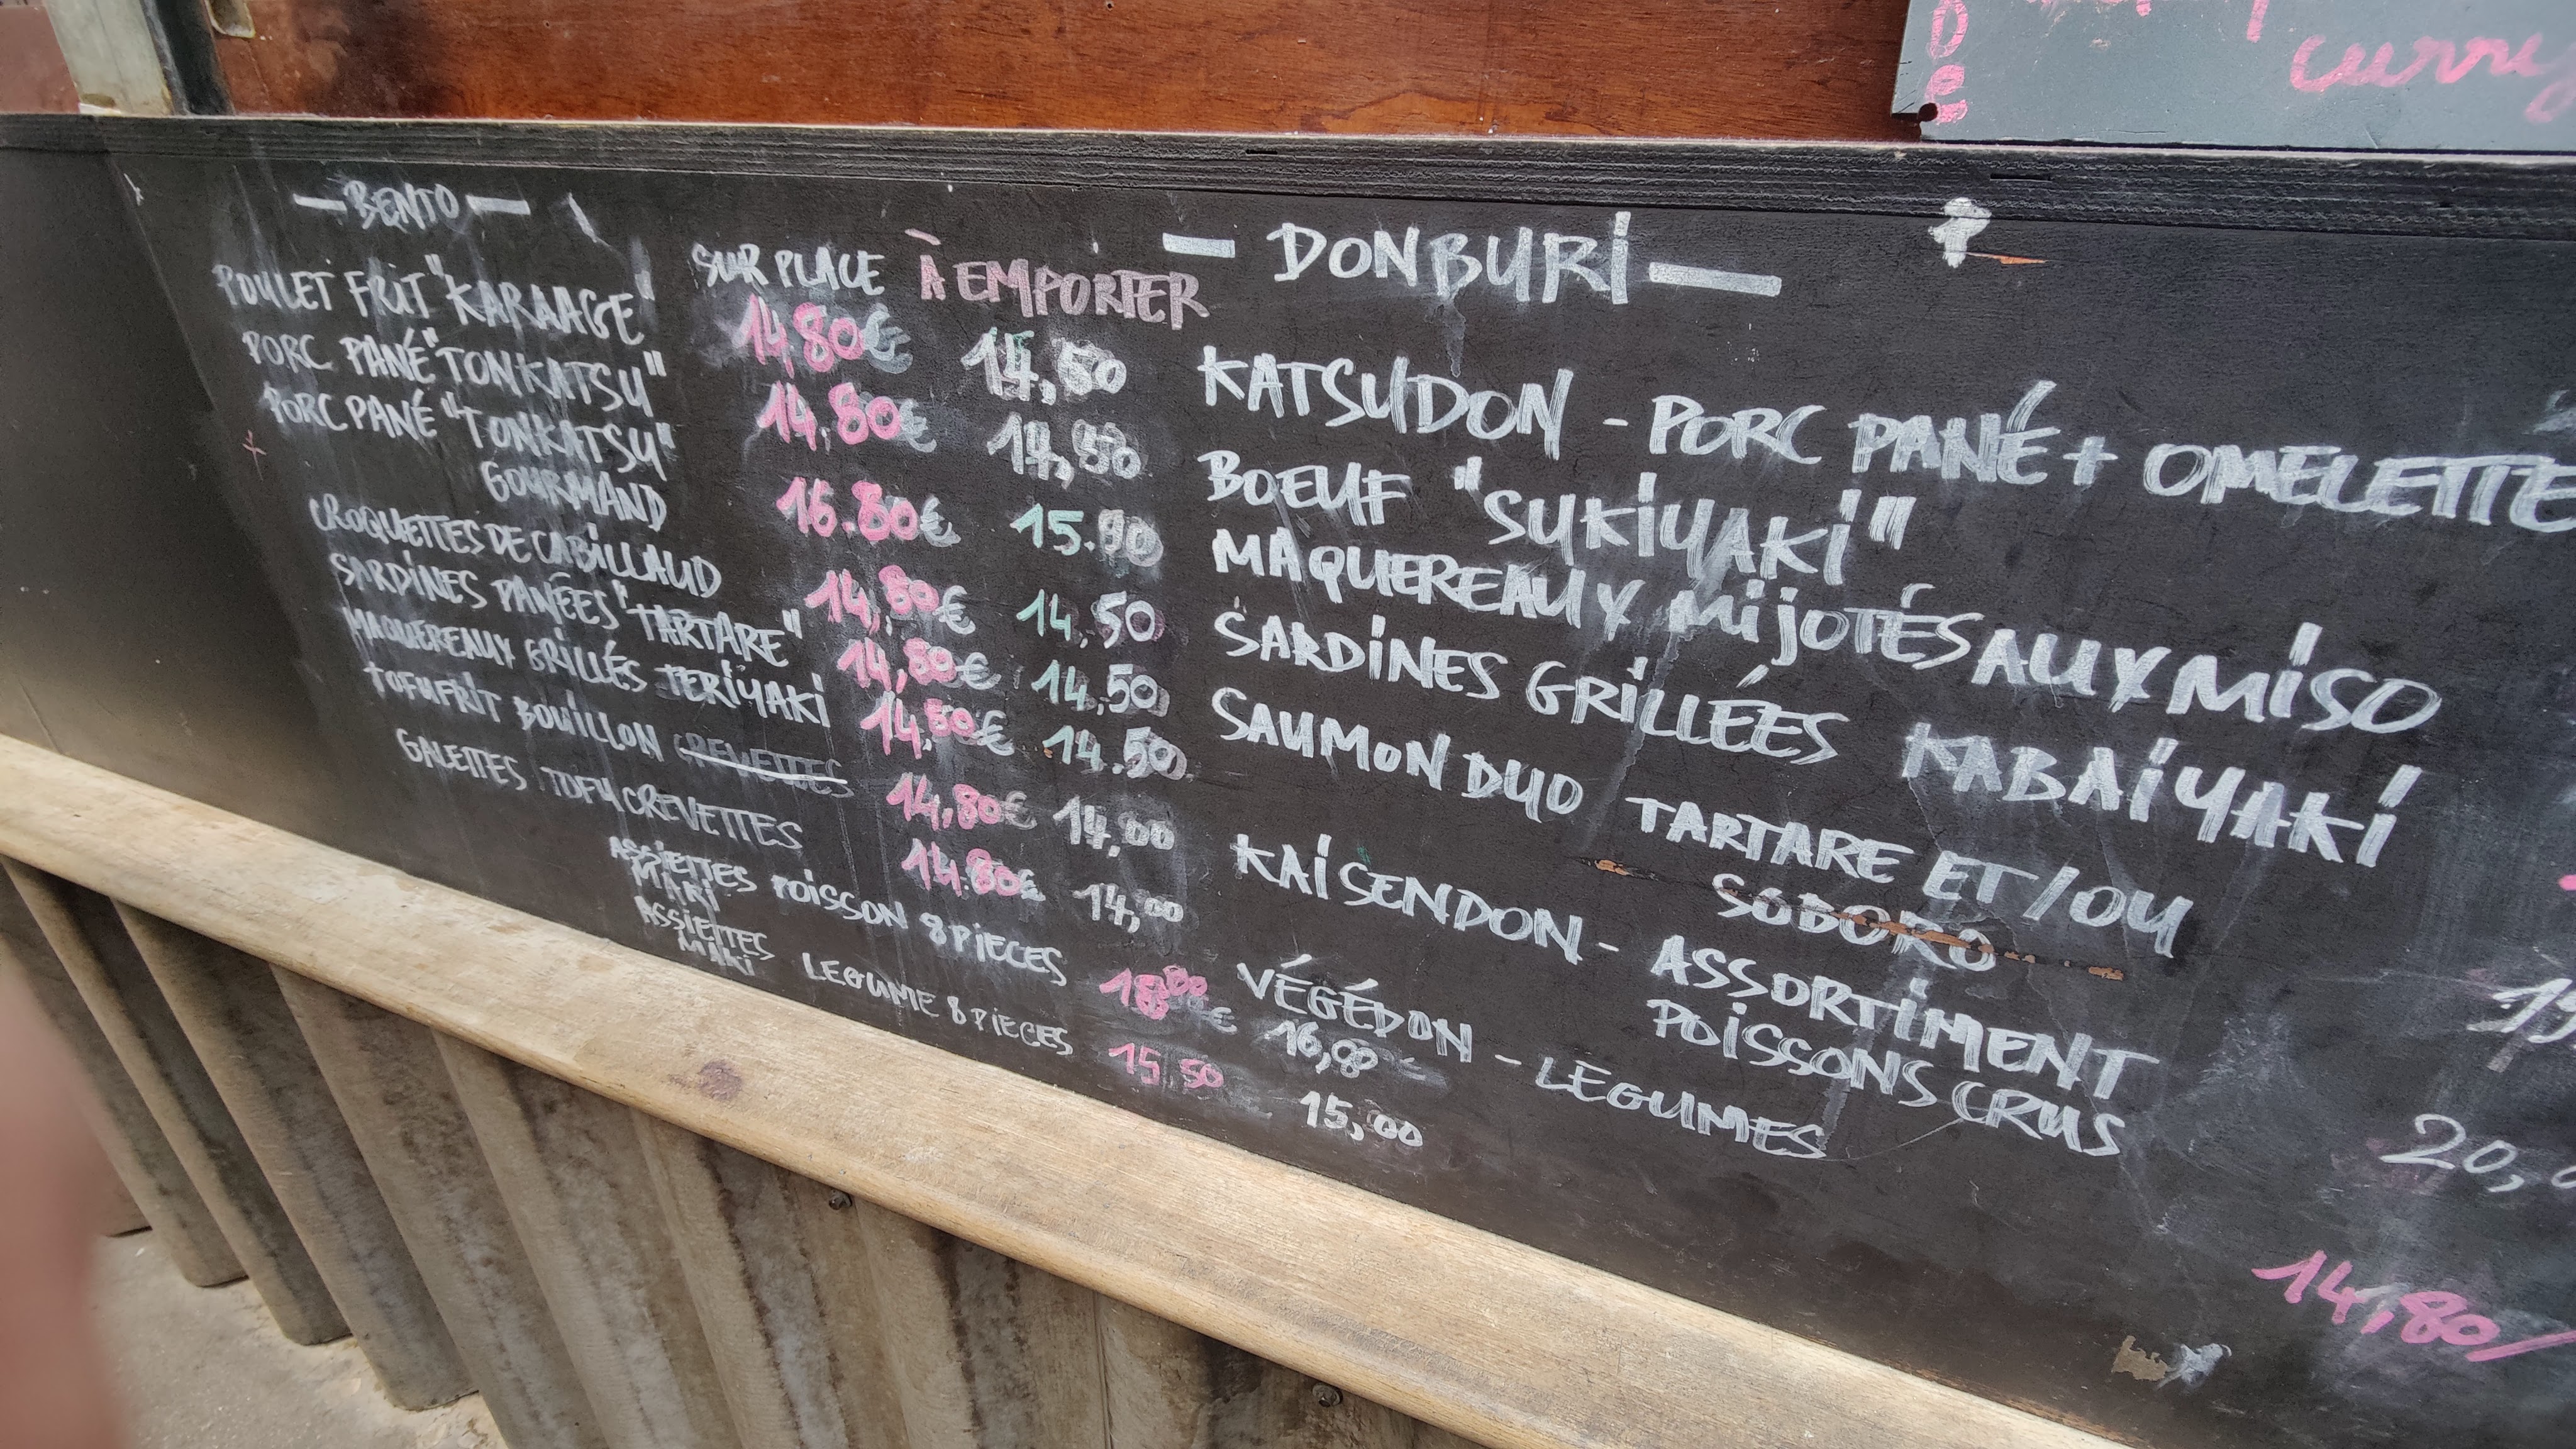 curry
— BENTO —
SUR PLACE À EMPORTER
POULET FRIT "KARAAGE" 14.80€ 14,50
PORC PANÉ "TONKATSU" 14.80€ 14,50
PORC PANÉ "TONKATSU"
GOURMAND 16.80€ 15.90
CROQUETTES DE CABILLAUD 14,80€ 14,50
SARDINES PANÉES "TARTARE" 14,80€ 14,50
MAQUEREAUX GRILLÉS TERIYAKI 14,80€ 14.50
TOFU FRIT BOUILLON CREVETTES 14,80€ 14,00
GALETTES TOFU CREVETTES 14.80€ 14,00
ASSIETTES
MAKI POISSON 8 PIECES 16,00
ASSIETTES
MAKI LEGUME 8 PIECES 15.50 15,00
— DONBURI —
KATSUDON - PORC PANÉ + OMELETTE
BOEUF "SUKIYAKI"
MAQUEREAUX MIJOTÉS AUX MISO
SARDINES GRILLÉES KABAIYAKI
SAUMON DUO TARTARE ET/OU
SOBORO
KAISENDON - ASSORTIMENT
POISSONS CRUS
VÉGÉDON - LEGUMES
14,80